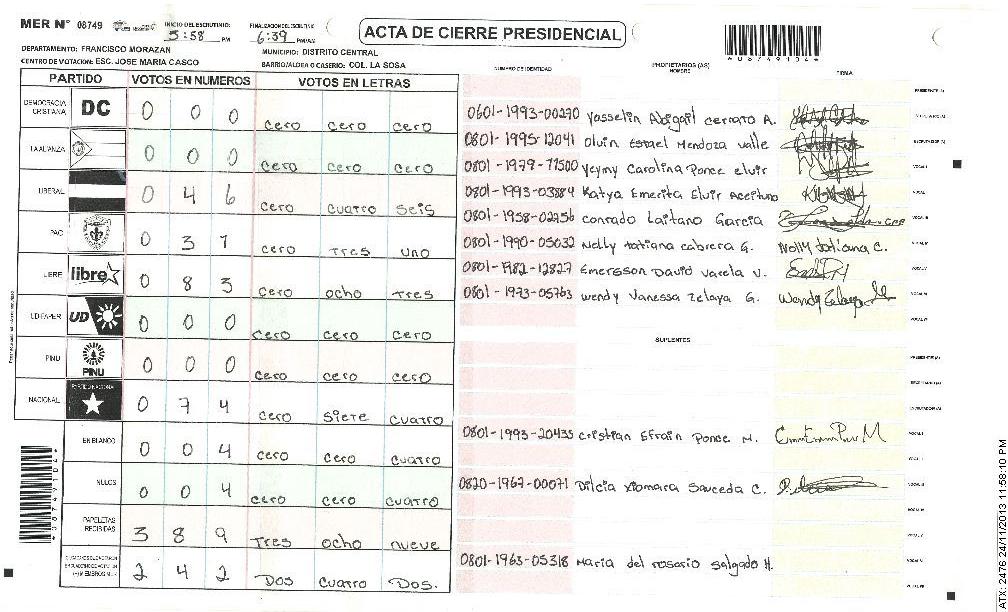 MER N° 08749
INICIO DEL ESCRUTINIO:
5:58 PM
FINALIZACION DEL ESCRUTINIO
6:39 PM/AM
ACTA DE CIERRE PRESIDENCIAL
*08749104*
DEPARTAMENTO: FRANCISCO MORAZAN
MUNICIPIO: DISTRITO CENTRAL
CENTRO DE VOTACION: ESC. JOSE MARIA CASCO
BARRIO/ALDEA O CASERIO: COL. LA SOSA
NUMERO DE IDENTIDAD
PROPIETARIOS (AS)
NOMBRE
FIRMA
PARTIDO VOTOS EN NUMEROS VOTOS EN LETRAS
DEMOCRACIA CRISTIANA DC 0 0 0 cero cero cero
LA ALIANZA 0 0 0 cero cero cero
LIBERAL 0 4 6 cero cuatro seis
PAC 0 3 1 cero Tres uno
LIBRE libre 0 8 3 cero ocho Tres
UD FAPER UD 0 0 0 cero cero cero
PINU PINU 0 0 0 cero cero cero
NACIONAL PARTIDO NACIONAL 0 7 4 cero siete cuatro
EN BLANCO 0 0 4 cero cero cuatro
NULOS 0 0 4 cero cero cuatro
PAPELETAS RECIBIDAS 3 8 9 Tres ocho nueve
2 4 2 Dos cuatro Dos.
0601-1993-00270 Yosselin Abigail cerrato A.
0801-1995-12041 Olvin Esrael Mendoza valle
0801-1979-11500 Yeymy Carolina Ponce elvir
0801-1993-03884 Katya Emerita Elvir Aceituno
0801-1958-02756 conrado Laitano Garcia
0801-1990-05032 Nolly tatiana cabrera G. Nolly tatiana C.
0801-1982-12827 Emersson David varela v.
0801-1973-05763 wendy Vanessa Zelaya G. Wendy Zelaya
SUPLENTES
0801-1993-20435 Cristian Efrain Ponce M.
0820-1967-00071 Dilcia Xiomara Sauceda C.
0801-1963-05318 Maria del rosario salgado H.
*08749104*
ATX: 2476 24/11/2013 11:58:10 PM